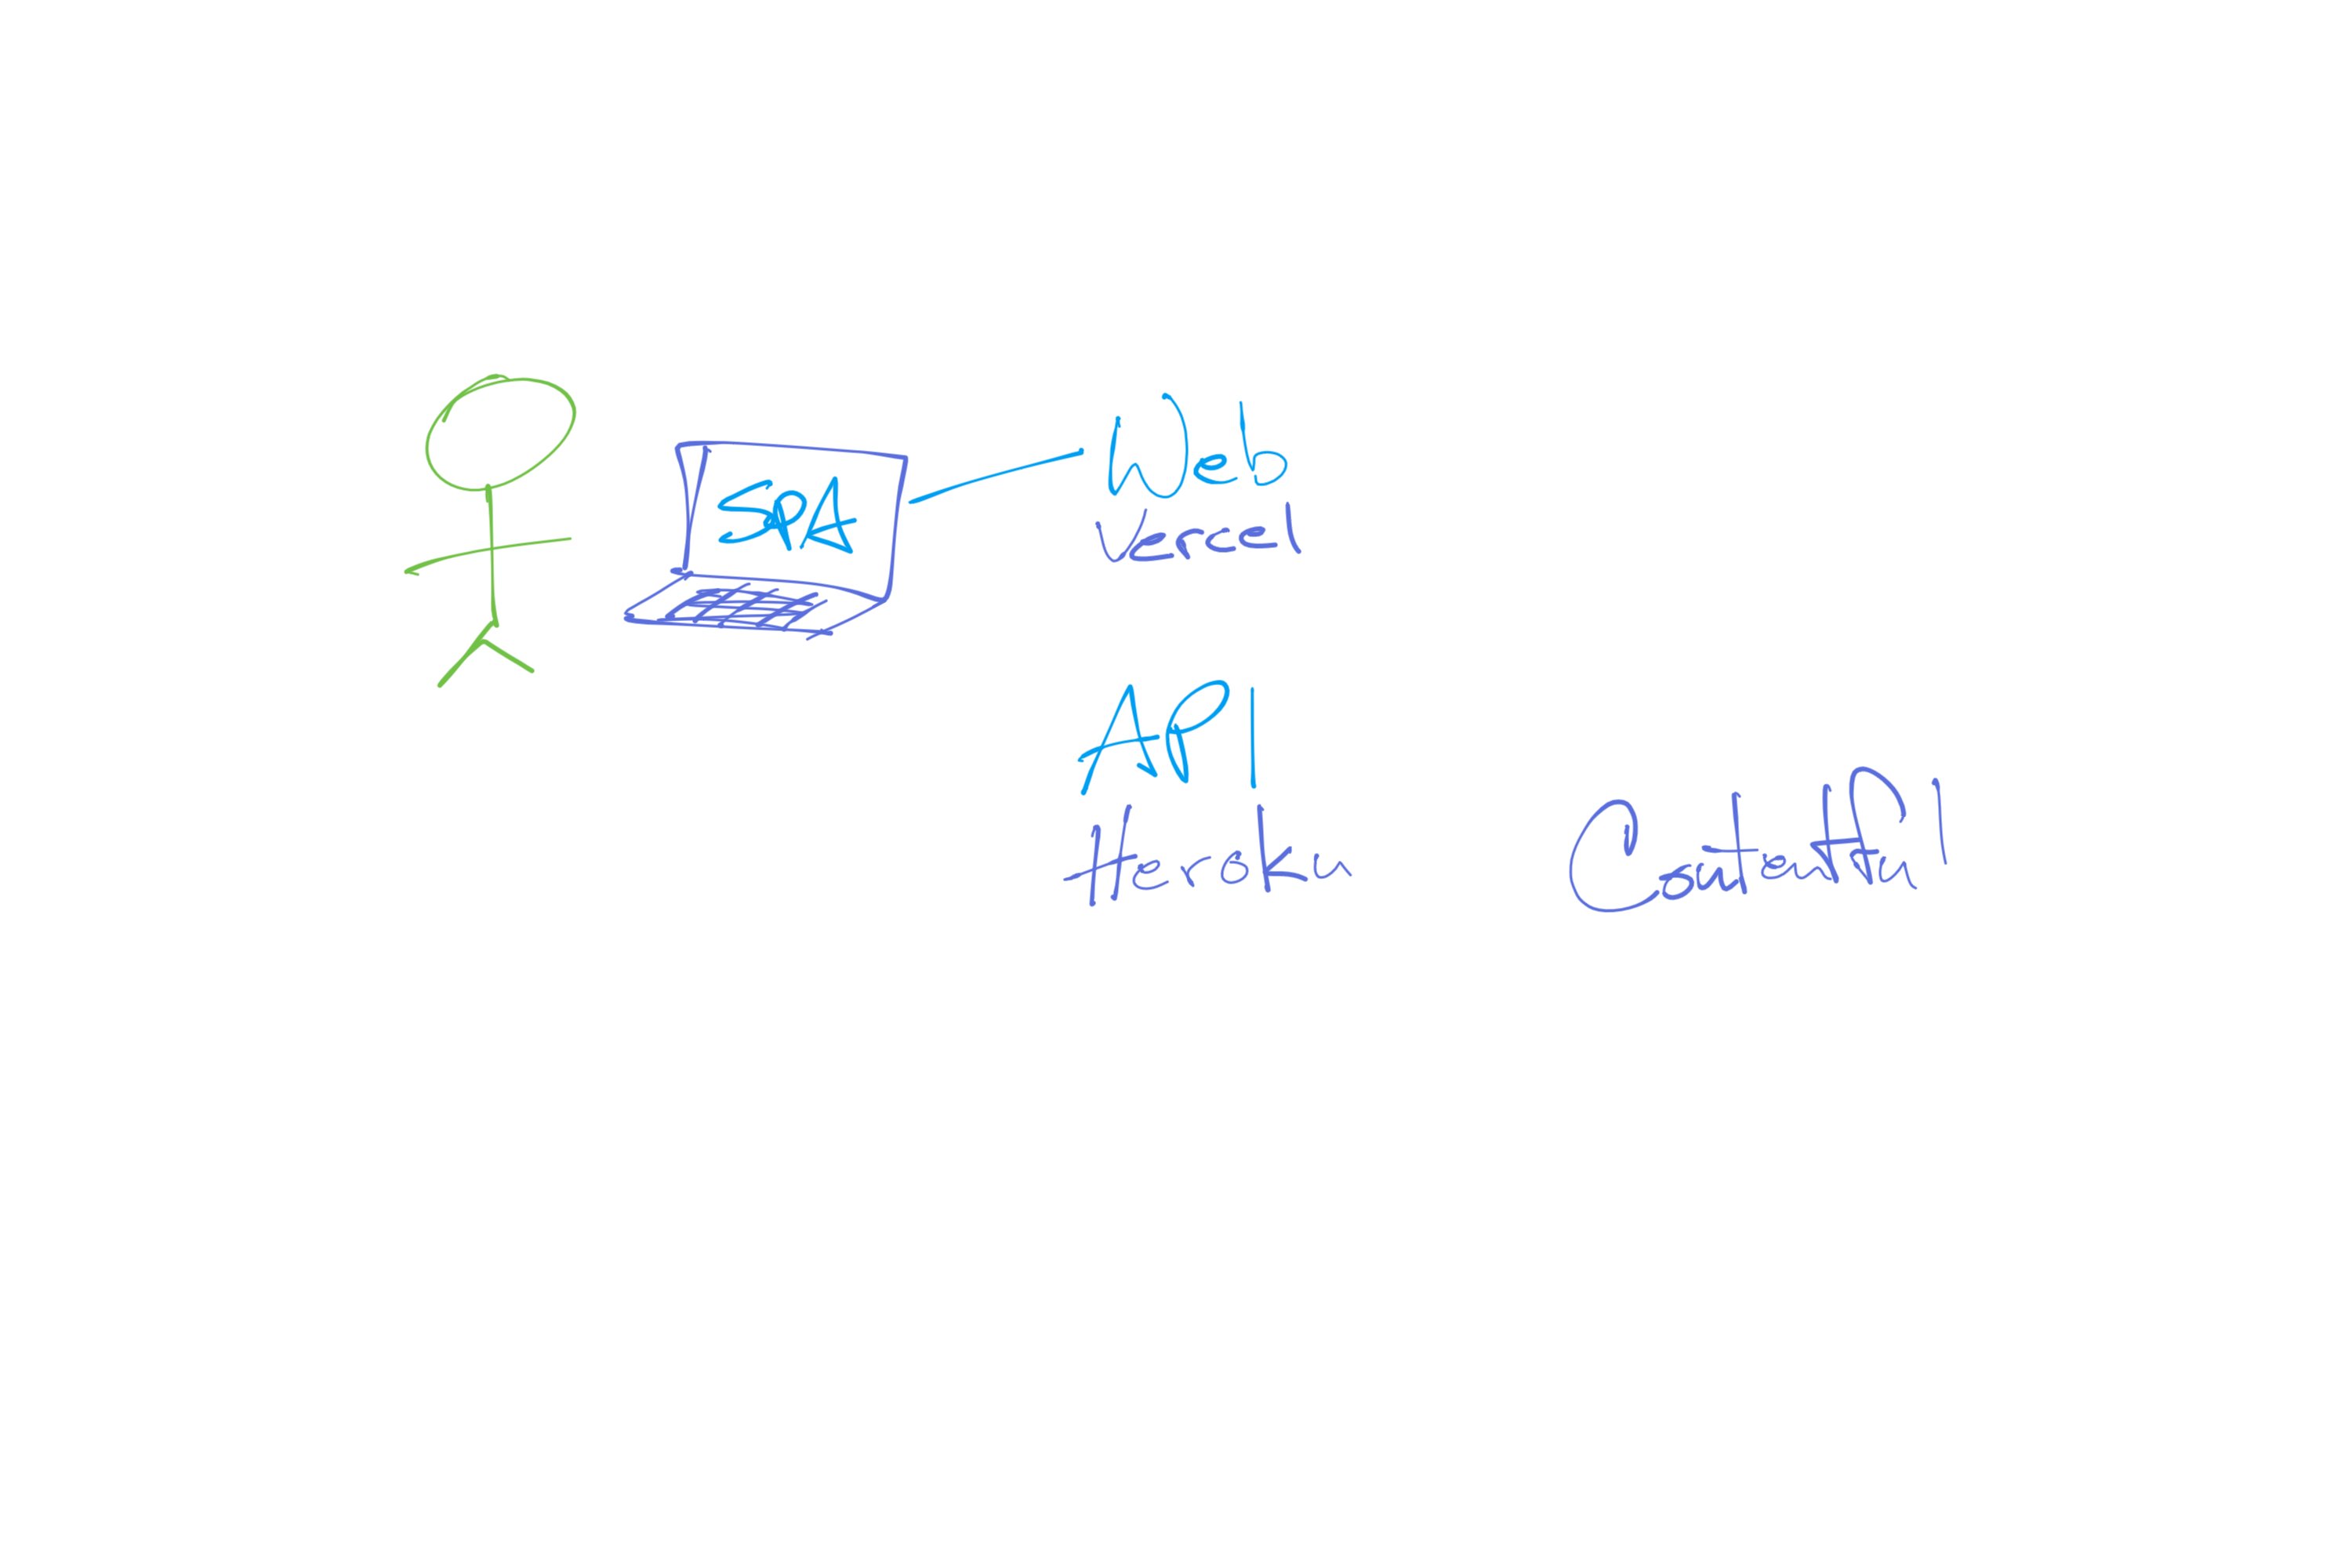 SPA
Web
Vercel
API
Heroku
Contentful